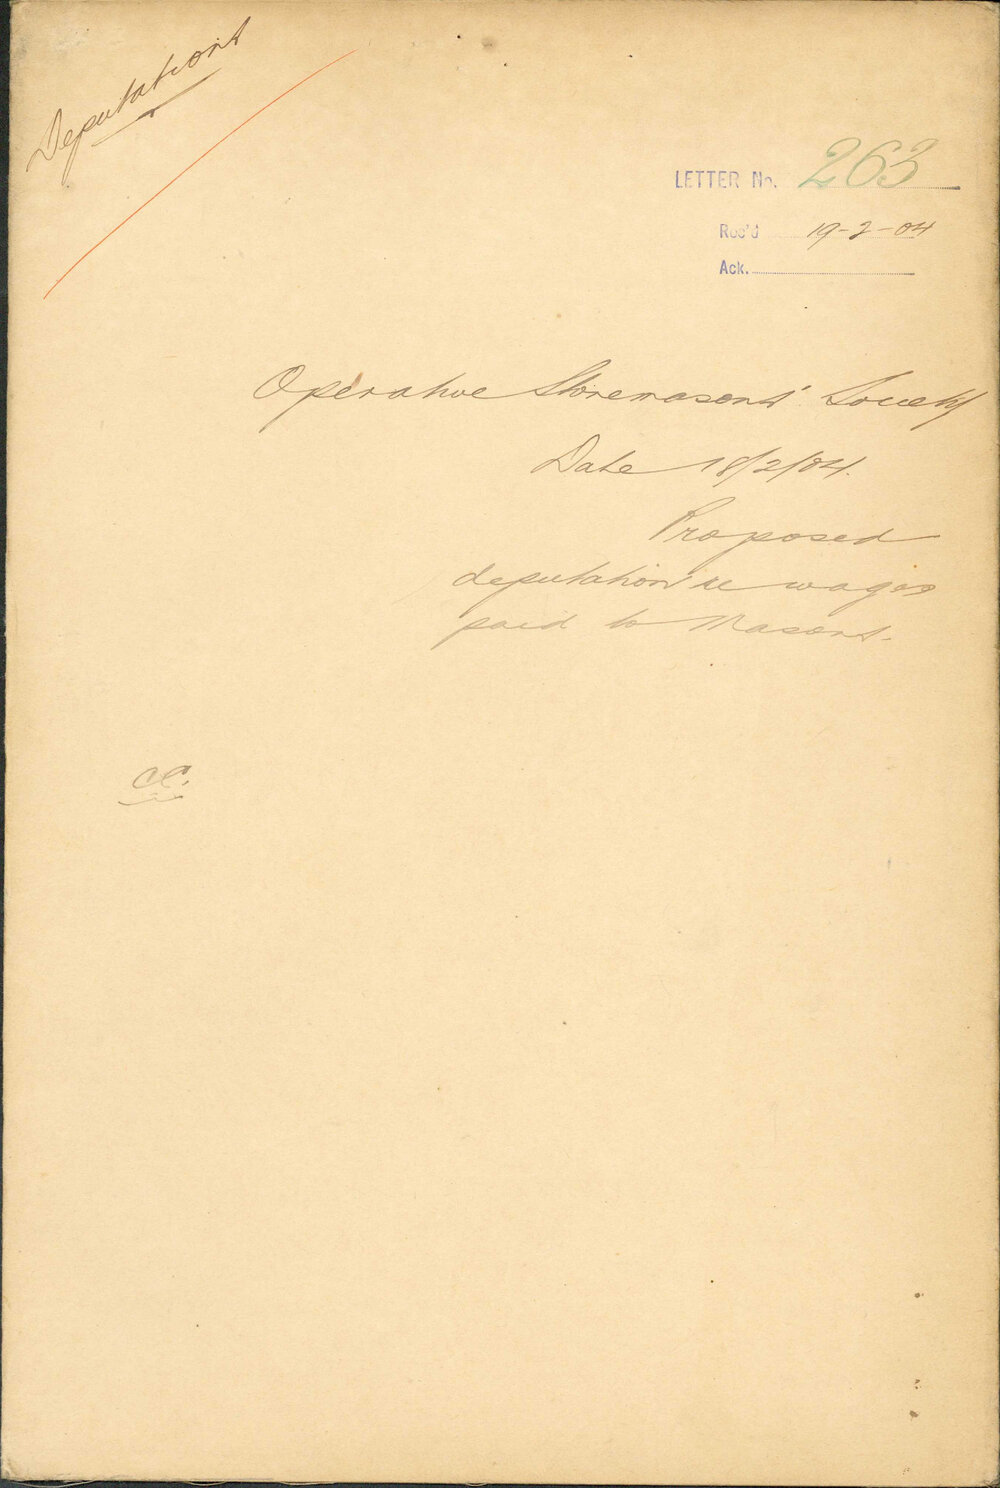 Deputations
LETTER No. 263
Rec'd 19-2-04
Ack.
Operative Stonemasons' Society
Date 18/2/04.
Proposed
deputation re wages
paid to Masons.
CC.